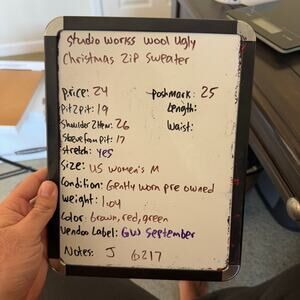 Studio works wool Ugly
Christmas Zip Sweater
Price: 24 Poshmark: 25
Pit2pit: 19 Length:
Shoulder2Hem: 26 Waist:
Sleeve from pit: 17
Stretch: yes
Size: US women's M
Condition: Gently worn pre owned
Weight: 1.04
Color: brown, red, green
Vendoo Label: GW September
Notes: J 6217